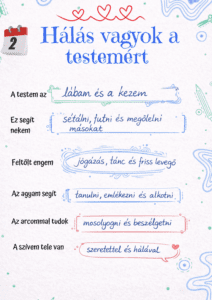 2
Hálás vagyok a
testemért
A testem az lábam és a kezem
Ez segít nekem sétálni, futni és megölelni másokat
Feltölt engem jógázás, tánc és friss levegő
Az agyam segít tanulni, emlékezni és alkotni
Az arcommal tudok mosolyogni és beszélgetni
A szívem tele van szeretettel és hálával